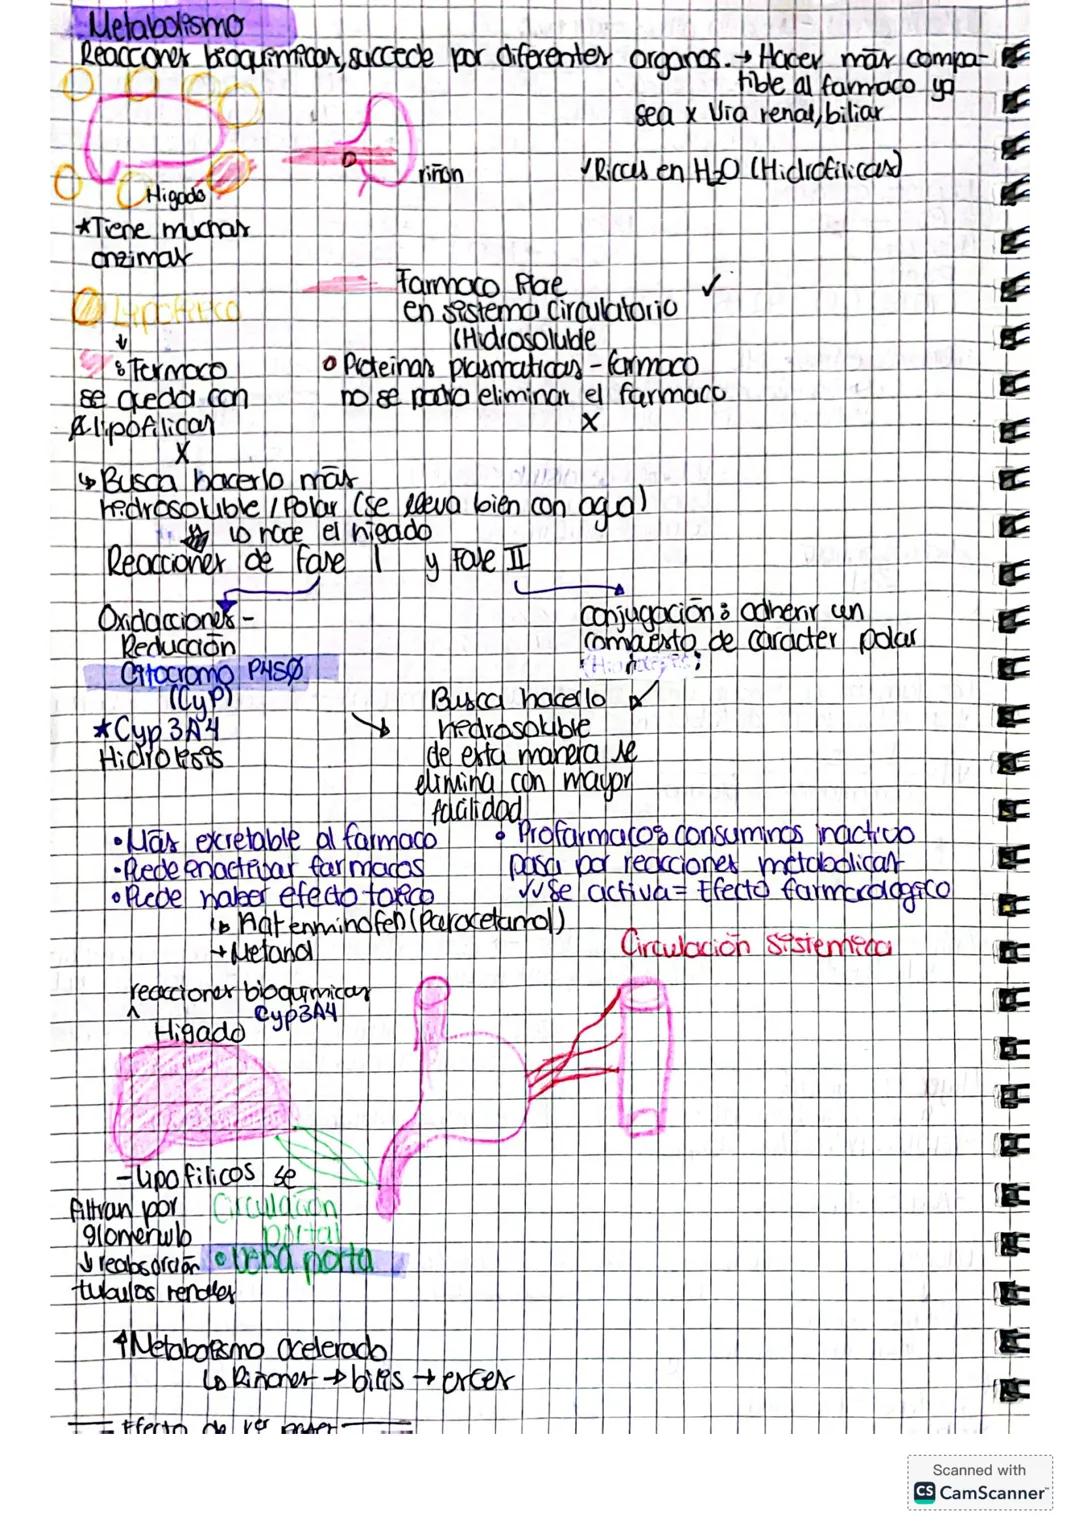 Metabolismo
Reacciones bioquimicas, succede por diferentes organos. → Hacer más compa-
tible al farmaco ya
sea x Via renal, biliar
riñon
✓Riccas en H2O (Hidrofilicas)
Higado
*Tiene muchas
enzimas
Lipofilico
Farmaco libre ✓
en sistema circulatorio
(Hidrosoluble
↓
Farmaco
se queda con
lipofilicas
X
Proteinas plasmaticas - farmaco
no se podra eliminar el farmaco
X
↳ Busca hacerlo más
hidrosoluble / Polar (se lleva bien con agua)
lo hace el higado
Reacciones de fase I y Fase II
Oxidacciones -
Reducción
Citocromo P450
(CyP)
*Cyp 3A4
Hidrolisis
conjugación: adherir un
compuesto de caracter polar
Busca hacerlo
hidrosoluble
de esta manera se
elimina con mayor
facilidad
• Más excretable al farmaco
• Puede inactivar farmacos
• Puede haber efecto toxico
↳ Acetaminofen (Paracetamol)
→ Metanol
• Profarmacos: consumimos inactivo
pasa por reacciones metabolicas
✓✓ Se activa = Efecto farmacologico
Circulación Sistemica
reacciones bioquimicas
Cyp3A4
Higado
- lipofilicos se
filtran por
glomerulo
↓ reabsorción
tubulos renales
Circulación
portal
• vena porta
↑ Metabolismo acelerado
↳ Riñones → bilis → excer
Efecto de 1er paser
Scanned with
CS CamScanner